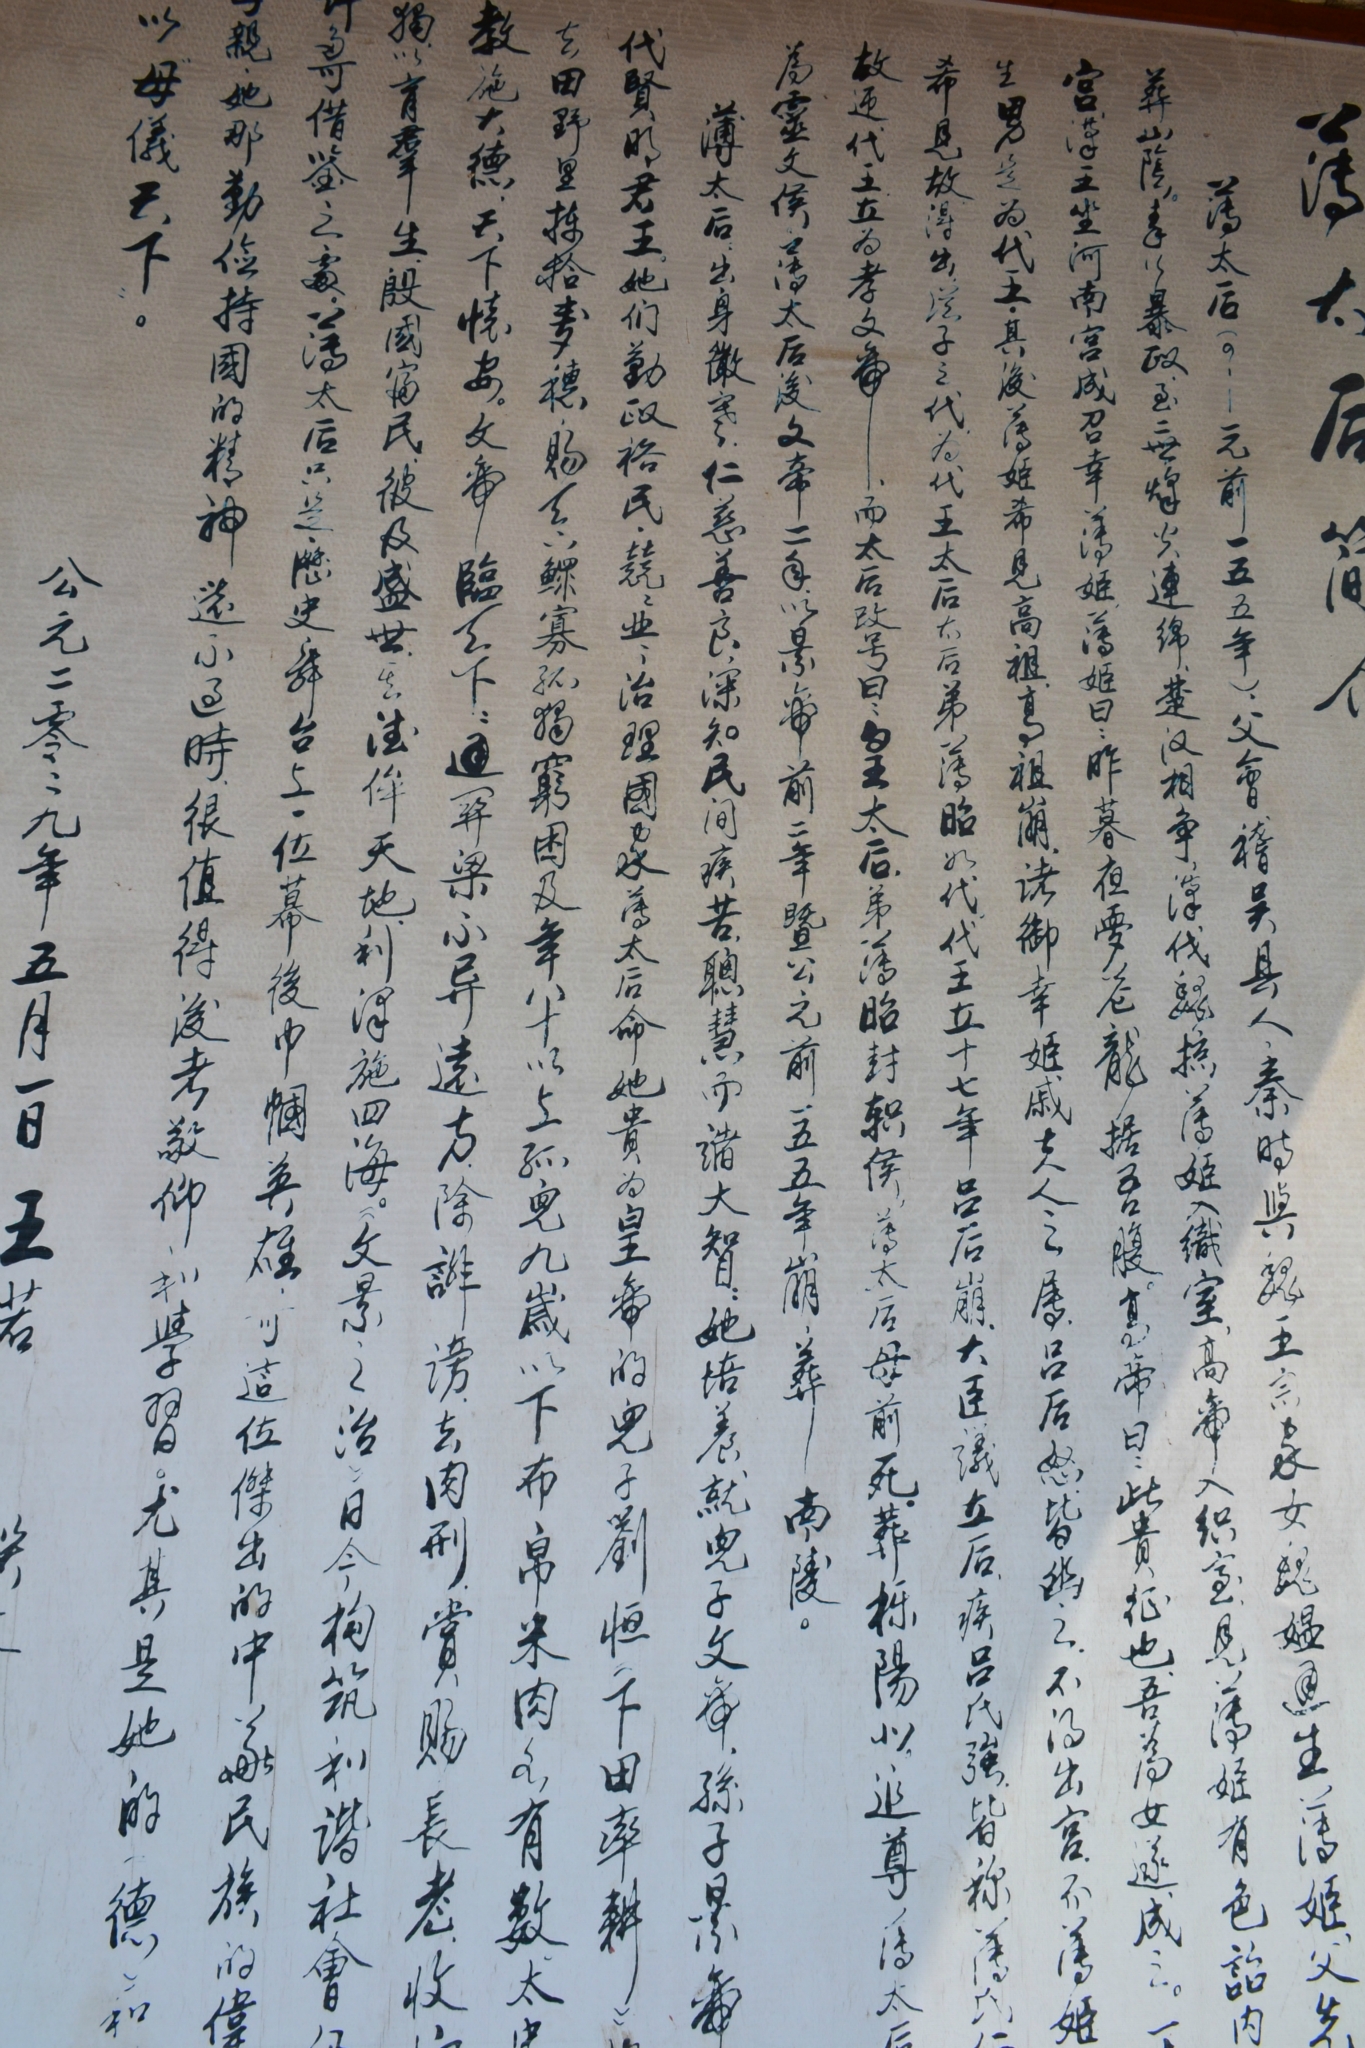 薄太后简介
薄太后(?—元前一五五年)：父會稽吴县人，秦時與魏王宗家女魏媪通生薄姬，父先
葬山陰。秦以暴政至二世烽火連綿，楚汉相争，漢伐魏掠薄姬入織室，高帝入织室，見薄姬有色詔内
宫漢王坐河南宫成召幸薄姬，薄姬曰：昨暮夜夢蒼龍據吾腹。高帝曰：此貴征也，吾為女遂成之。一
生男是为代王，其後薄姬希見高祖，高祖崩，诸御幸姬戚夫人之属，吕后怒，皆幽之，不得出宫，而薄姬
希見故得出，從子之代，为代王太后，太后弟薄昭如代，代王立十七年，吕后崩，大臣議立后，疾吕氏強，皆称薄氏仁
故迎代王立为孝文帝——，而太后改号曰：皇太后，弟薄昭封轵侯，薄太后母前死，葬栎陽北，追尊薄太后
為靈文侯，薄太后後文帝二年，以景帝前二年暨公元前一五五年崩，葬——南陵。
薄太后，出身微寒，仁慈善良，深知民间疾苦，聰慧而諳大智，她培養就兒子文帝，孫子景帝
代賢明君王，她们勤政裕民，兢兢业业，治理國家，薄太后命她貴为皇帝的兒子劉恒(下田率耕)
去田野里揀拾麦穗，賜天下鰥寡孤獨窮困及年八十以上孤兒九歲以下布帛米肉各有數。太史
教施大德，天下懷安。文帝臨天下：通関梁不异遠方，除誹谤，去肉刑，賞賜長老，收
獨以育羣生，殷國富民，彼及盛世，其德侔天地，利澤施四海。《文景之治》日今构筑和谐社會
可借鉴之處，薄太后只是歷史舞台上一位幕後巾帼英雄，可這位傑出的中華民族的偉
親，她那勤儉持國的精神還不過時，很值得後者敬仰和學習。尤其是她的(德)和
以“母儀天下”。
公元二零零九年五月一日 王若